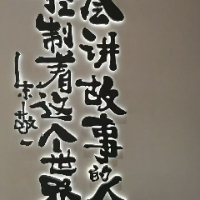 会讲故事的人
控制着这个世界